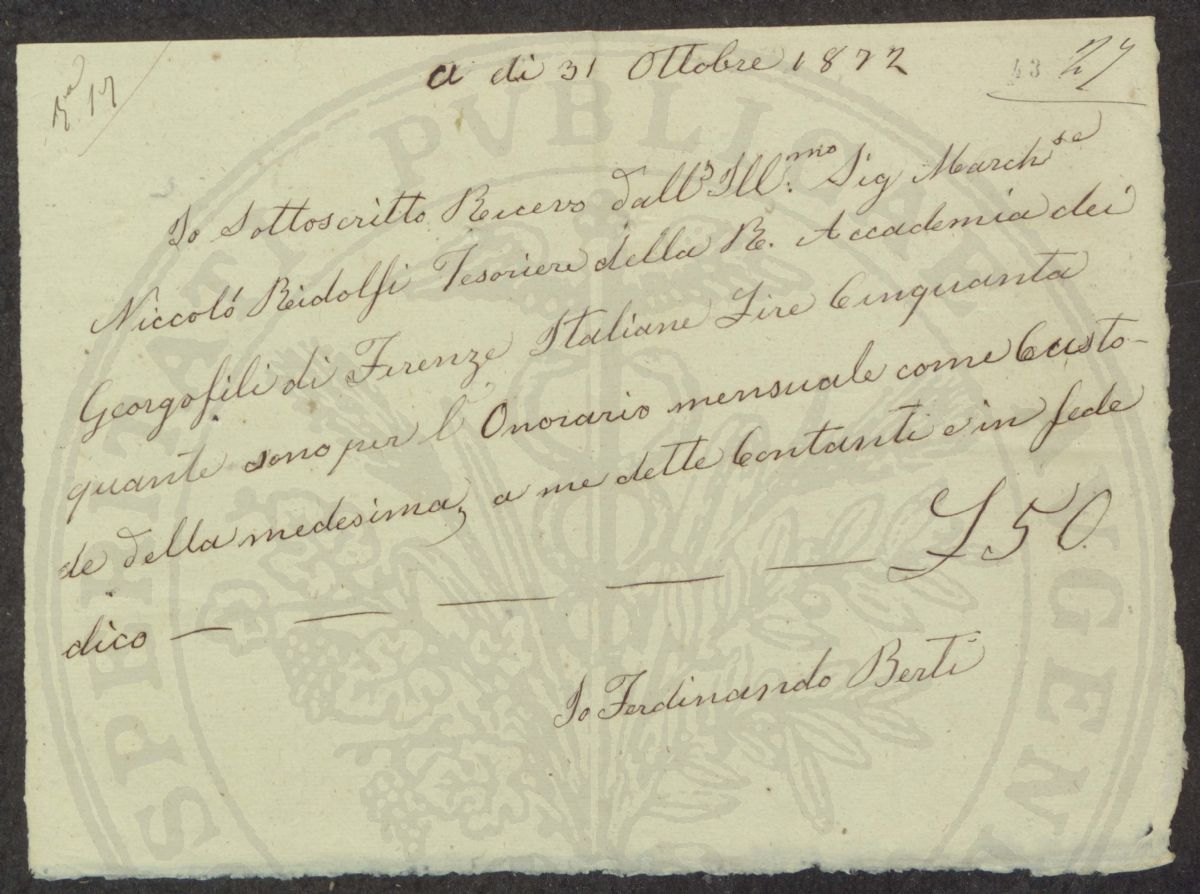 a di 31 Ottobre 1872
43 27
Io Sottoscritto Ricevo dall' Ill.mo Sig March.se
Niccoló Ridolfi Tesoriere della R. Accademia dei
Georgofili di Firenze Italiane Lire Cinquanta
quante sono per l' Onorario mensuale come Custo-
de della medesima, a me dette Contanti e in fede
dico — — — — — £50.
Io Ferdinando Berti
PROSPERITATI PVBLICAE AVGENDAE